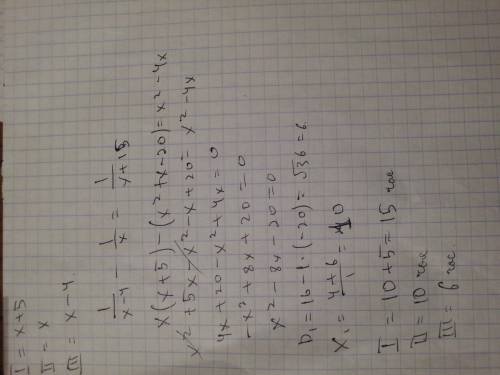 I = x+5
II = x
III = x-4
1/(x-4) - 1/x = 1/(x+5)
x(x+5)-(x²+x-20)=x²-4x
x²+5x-x²-x+20=x²-4x
4x+20-x²+4x=0
-x²+8x+20=0
x²-8x-20=0
D₁=16-1·(-20)=√36=6
x₁=(4+6)/1=10
I=10+5=15 час
II=10 час
III=6 час.